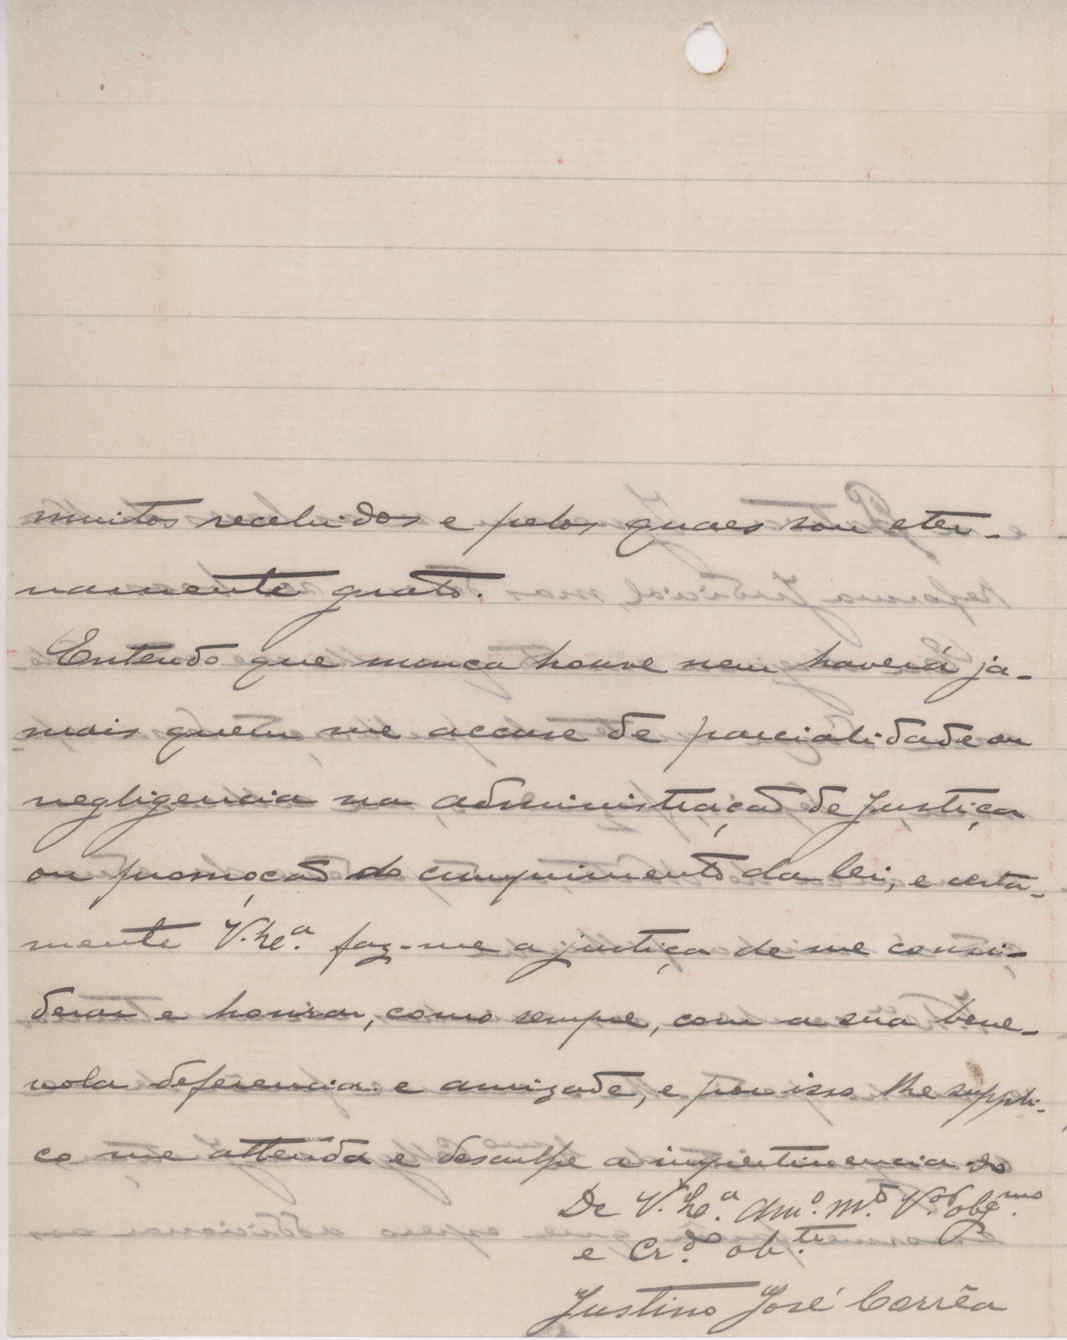 muitos recebidos e pelos quaes sou eter-
namente grato.
Entendo que nunca houve nem haverá ja-
mais quem me accuse de parcialidade ou
negligencia na administração de Justiça
ou promoção do cumprimento da lei, e certa-
mente V. Ex.ª faz-me a justiça de me consi-
derar e honrar, como sempre, com a sua bene-
vola deferencia e amizade, e por isso lhe suppli-
co me attenda e desculpe a impertinencia do
De V. Ex.ª Am.º m.to V.or obg.mo
e Cr.do ob.te
Justino José Corrêa